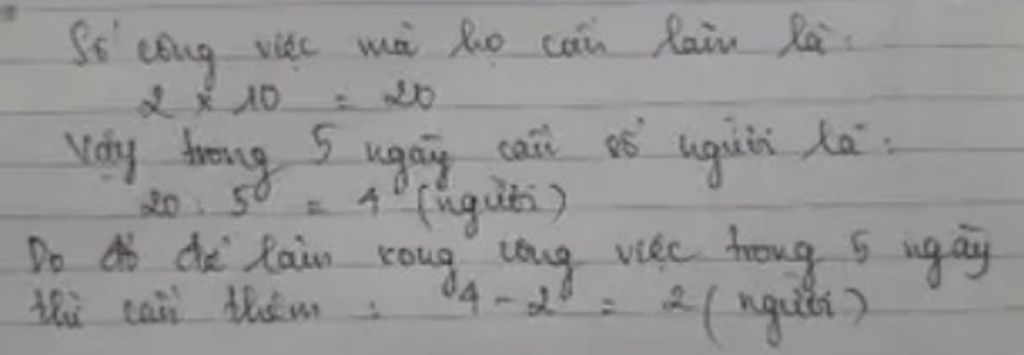 Số công việc mà họ cần làm là:
2 x 10 = 20
Vậy trong 5 ngày cần số người là:
20 : 5 = 4 (người)
Do đó để làm xong công việc trong 5 ngày
thì cần thêm : 4 - 2 = 2 (người)